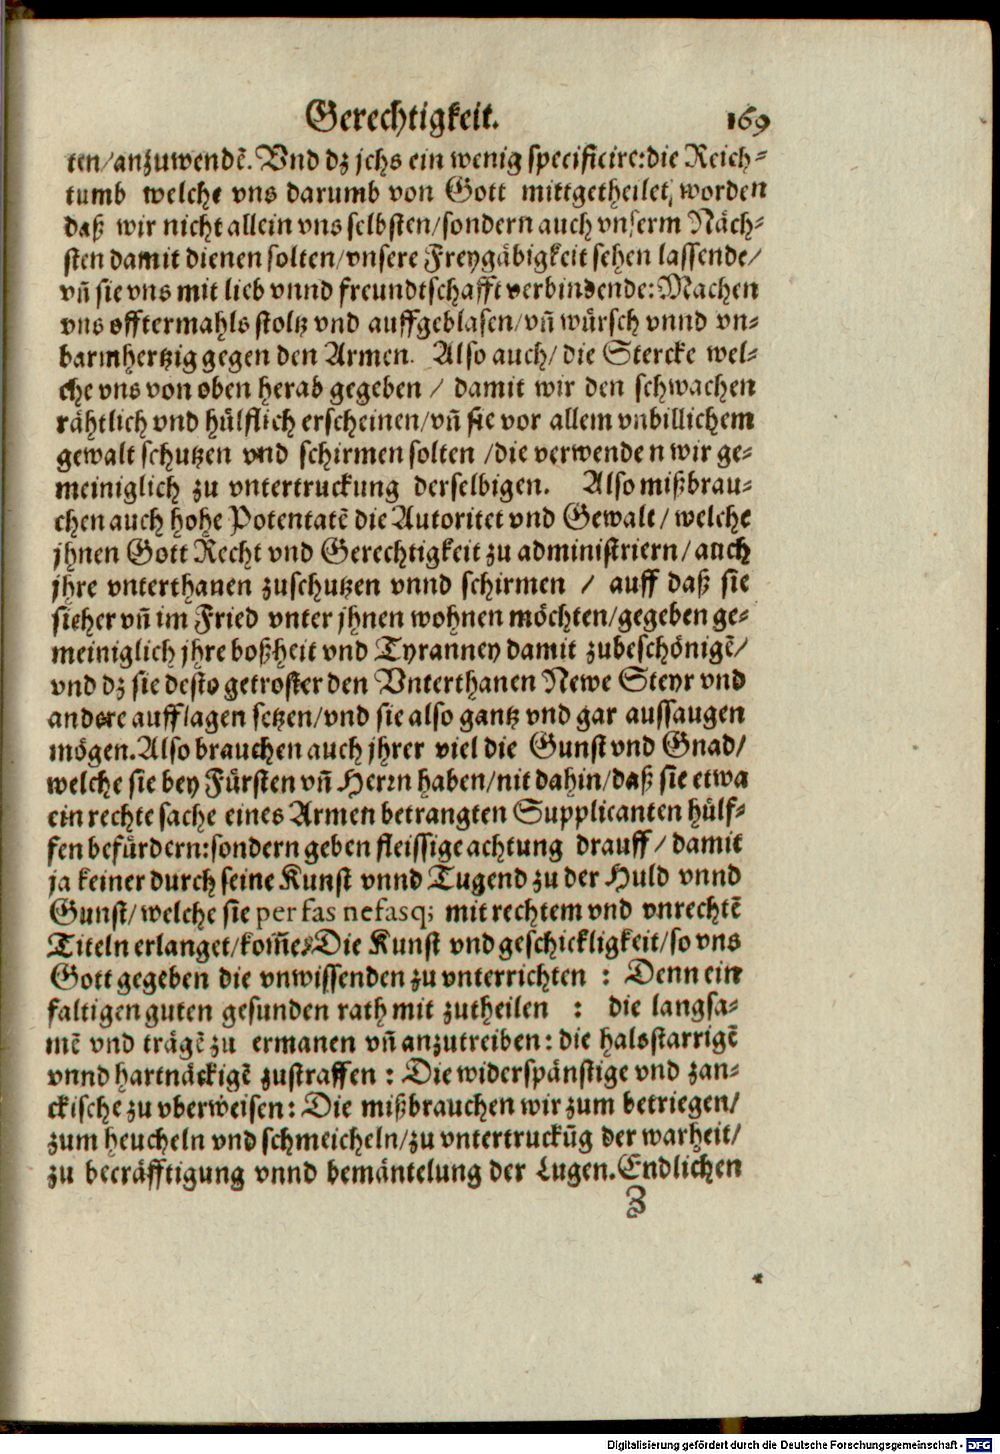 Gerechtigkeit. 169
ten/anzuwendẽ. Vnd dz jchs ein wenig specificire: die Reich-
tumb welche vns darumb von Gott mittgetheilet, worden
daß wir nicht allein vns selbsten/sondern auch vnserm Näch-
sten damit dienen solten/vnsere Freygäbigkeit sehen lassende/
vñ sie vns mit lieb vnnd freundtschafft verbindende: Machen
vns offtermahls stoltz vnd auffgeblasen/vñ würsch vnnd vn-
barmhertzig gegen den Armen. Also auch/ die Stercke wel-
che vns von oben herab gegeben / damit wir den schwachen
rähtlich vnd hülflich erscheinen/vñ sie vor allem vnbillichem
gewalt schutzen vnd schirmen solten /die verwenden wir ge-
meiniglich zu vntertruckung derselbigen. Also mißbrau-
chen auch hohe Potentatẽ die Autoritet vnd Gewalt/ welche
jhnen Gott Recht vnd Gerechtigkeit zu administriern/ auch
jhre vnterthanen zuschutzen vnnd schirmen / auff daß sie
sicher vñ im Fried vnter jhnen wohnen möchten/gegeben ge-
meiniglich jhre boßheit vnd Tyranney damit zubeschönigẽ/
vnd dz sie desto getroster den Vnterthanen Newe Steyr vnd
andere aufflagen setzen/vnd sie also gantz vnd gar aussaugen
mögen. Also brauchen auch jhrer viel die Gunst vnd Gnad/
welche sie bey Fürsten vñ Herrn haben/nit dahin/daß sie etwa
ein rechte sache eines Armen betrangten Supplicanten hülf-
fen befürdern: sondern geben fleissige achtung drauff/ damit
ja keiner durch seine Kunst vnnd Tugend zu der Huld vnnd
Gunst/welche sie per fas nefasq; mit rechtem vnd vnrechtẽ
Titeln erlanget/kom̃e. Die Kunst vnd geschickligkeit/so vns
Gott gegeben die vnwissenden zu vnterrichten : Denn ein
faltigen guten gesunden rath mit zutheilen : die langsa-
mẽ vnd trägẽ zu ermanen vñ anzutreiben: die halsstarrigẽ
vnnd hartnäckigẽ zustraffen : Die widerspänstige vnd zan-
ckische zu vberweisen: Die mißbrauchen wir zum betriegen/
zum heucheln vnd schmeicheln/zu vntertruckũg der warheit/
zu becräfftigung vnnd bemäntelung der Lugen. Endlichen
Z
Digitalisierung gefördert durch die Deutsche Forschungsgemeinschaft - DFG